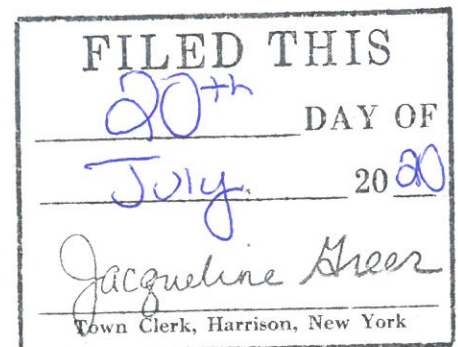 FILED THIS
20th DAY OF
July. 2020
Jacqueline Greer
Town Clerk, Harrison, New York